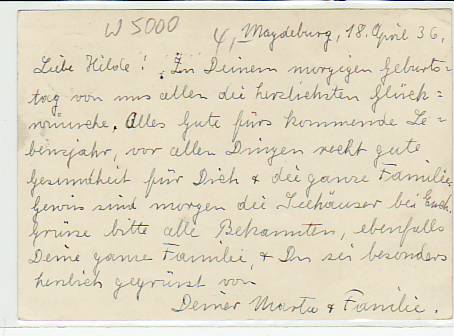 W 5000
4, Magdeburg, 18. April 36.
Liebe Hilde! Zu Deinem morgigen Geburts-
tag von uns allen die herzlichsten Glück-
wünsche. Alles Gute fürs kommende Le-
bensjahr, vor allen Dingen recht gute
Gesundheit für Dich & die ganze Familie.
Gewiss sind morgen die Seehäuser bei Euch.
Grüsse bitte alle Bekannten, ebenfalls
Deine ganze Familie, & Du sei besonders
herzlich gegrüsst von
Deiner Marta & Familie.